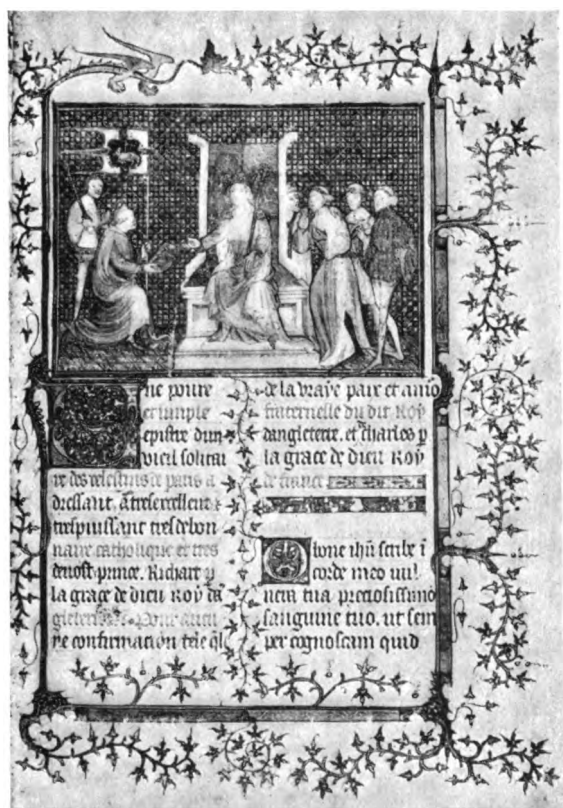 ne poure
et simple
epistre dun
vieil solitai
re des celestins de paris a
dressant. a tresexcellent &
trespuissant tres debon
naire catholique et tres
devost prince. Richart p
la grace de dieu Roy dã
gleterre. Pour aucu
ne confirmacion tele q̃l
de la vraye paix et amo
fraternelle du dit Roy
dangleterre. et charles p
la grace de dieu Roy
de france
O bone ihũ scribe ĩ
corde meo vul
nera tua preciosissimo
sanguine tuo. ut sem
per cognoscam quid